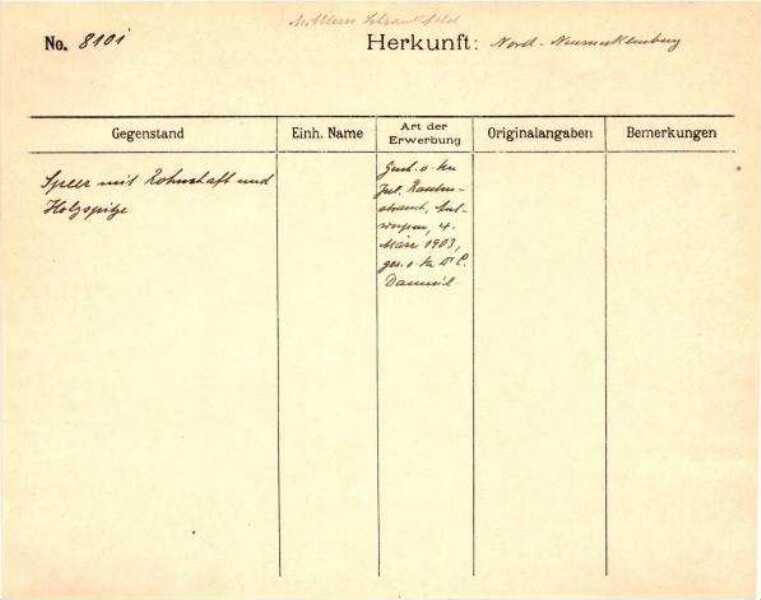 Mittlere Schrankfeld
No. 8101
Herkunft: Nord-Neumecklenburg
Gegenstand
Einh. Name
Art der Erwerbung
Originalangaben
Bemerkungen
Speer mit Rohrschaft und
Holzspitze
Gesch. v. Hn
Jul. Rauten-
strauch, Ant-
werpen, 4.
März 1903,
ges. v. Hn Dr C.
Danneil